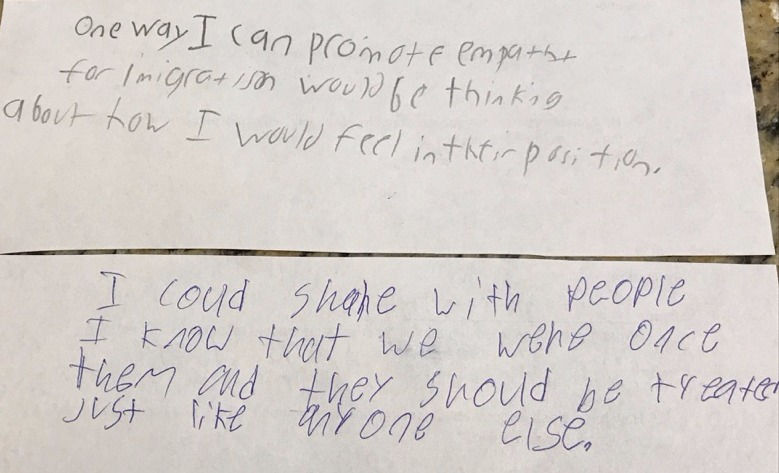 One way I can promote empathy
for Imigratison would be thinking
about how I would feel in their position.
I coud share with people
I know that we were once
them and they should be treated
just like anyone else.